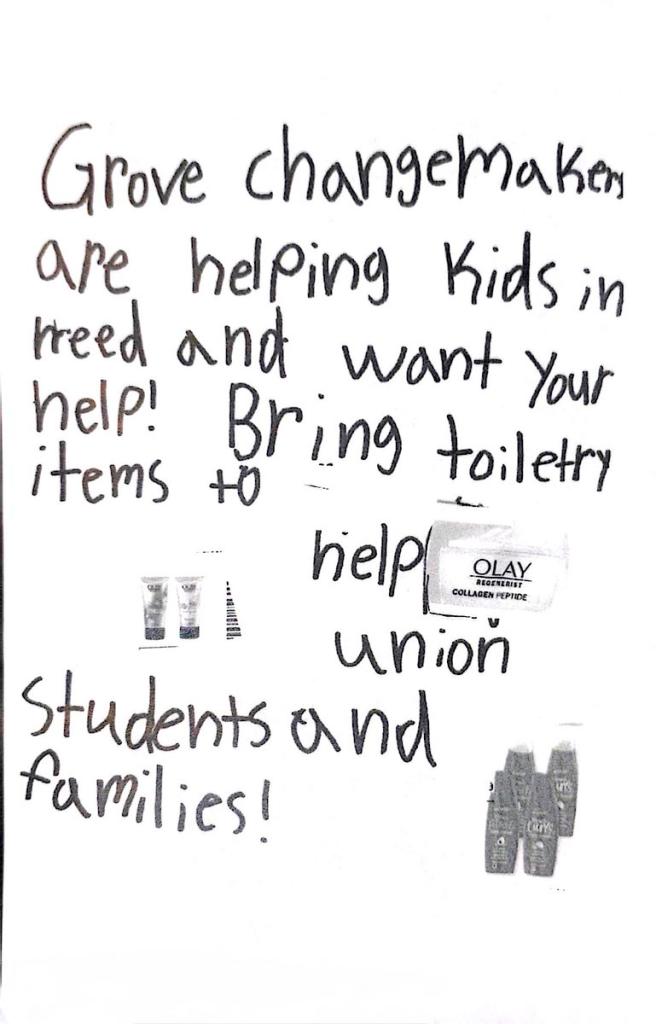 Grove changemakers
are helping kids in
need and want your
help! Bring toiletry
items to
help
OLAY
REGENERIST
COLLAGEN PEPTIDE
union
students and
families!